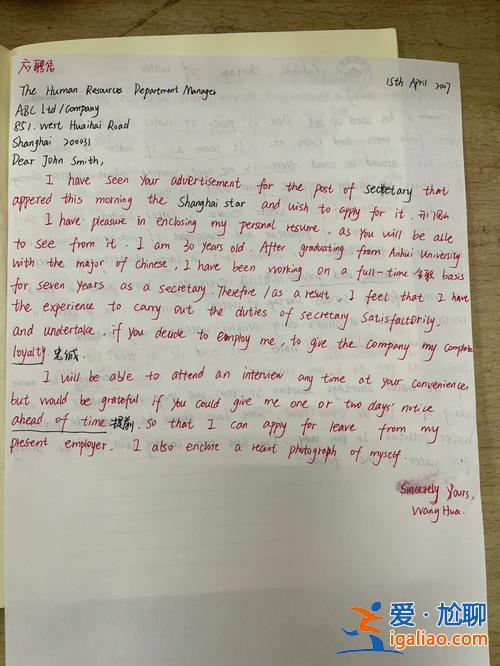 应聘信
15th April 2007
The Human Resources Department Manager
ABC Ltd / Company
851. West Huaihai Road
Shanghai 200031
Dear John Smith,
I have seen Your advertisement for the post of secretary that
appered this morning the Shanghai star and wish to apply for it.
I have pleasure in enclosing my personal resume, as You will be able
to see from it. I am 30 years old. After graduating from Anhui University
with the major of Chinese, I have been working on a full-time 全职 basis
for seven Years as a secretary. Therefore / as a result, I feel that I have
the experience to carry out the duties of secretary satisfactorily
and undertake, if you decide to employ me, to give the company my complete
loyalty 忠诚.
I will be able to attend an interview any time at your convenience
but would be grateful if you could give me one or two days' notice
ahead of time 提前, so that I can apply for leave from my
present employer. I also enclose a recent photograph of myself
Sincerely Yours,
Wang Hua.
爱·尬聊
igaliao.com